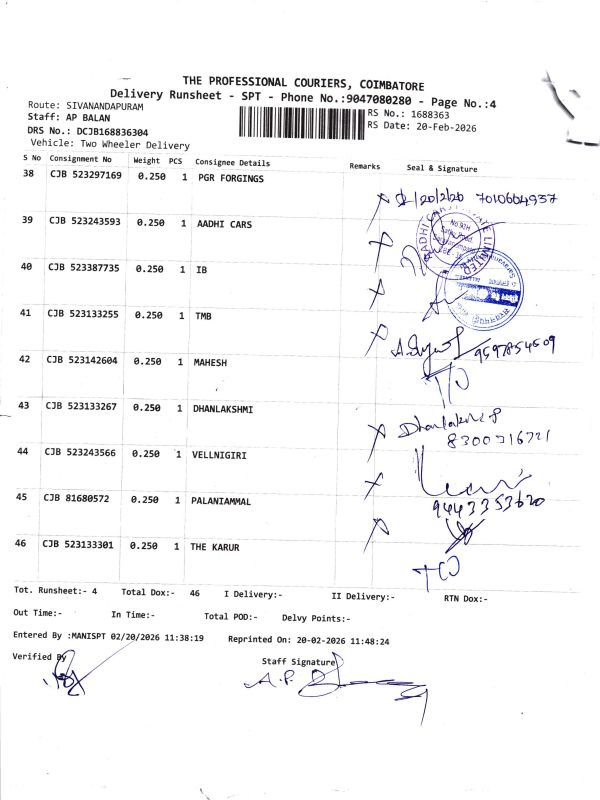 THE PROFESSIONAL COURIERS, COIMBATORE
Delivery Runsheet - SPT - Phone No.:9047080280 - Page No.:4
Route: SIVANANDAPURAM
RS No.: 1688363
Staff: AP BALAN
RS Date: 20-Feb-2026
DRS No.: DCJB168836304
Vehicle: Two Wheeler Delivery
S No Consignment No Weight PCS Consignee Details Remarks Seal & Signature
38 CJB 523297169 0.250 1 PGR FORGINGS
20/2/26 7010604937
39 CJB 523243593 0.250 1 AADHI CARS
AADHI CARS PRIVATE LIMITED
40 CJB 523387735 0.250 1 IB
41 CJB 523133255 0.250 1 TMB
9597854509
42 CJB 523142604 0.250 1 MAHESH
43 CJB 523133267 0.250 1 DHANLAKSHMI
8300716721
44 CJB 523243566 0.250 1 VELLNIGIRI
9443353620
45 CJB 81680572 0.250 1 PALANIAMMAL
46 CJB 523133301 0.250 1 THE KARUR
Tot. Runsheet:- 4 Total Dox:- 46 I Delivery:- II Delivery:- RTN Dox:-
Out Time:- In Time:- Total POD:- Delvy Points:-
Entered By :MANISPT 02/20/2026 11:38:19 Reprinted On: 20-02-2026 11:48:24
Verified By
Staff Signature